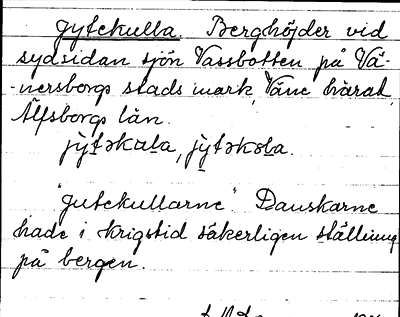 Jytekulla. Berghöjder vid
sydsidan sjön Vassbotten på Vä-
-nersborgs stads mark, Väne härad,
Älfsborgs län.
jỳtəkala, jỳtəkɷla.
"Jutekullarne" Danskarne
hade i krigstid säkerligen ställning
på bergen.